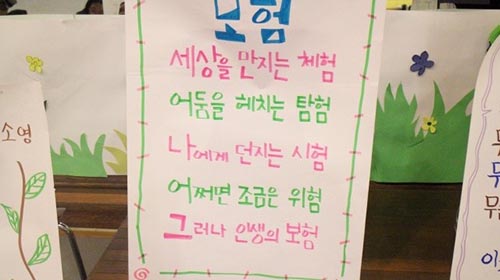 모험
세상을 만지는 체험
어둠을 헤치는 탐험
나에게 던지는 시험
어쩌면 조금은 위험
그러나 인생의 보험
소영